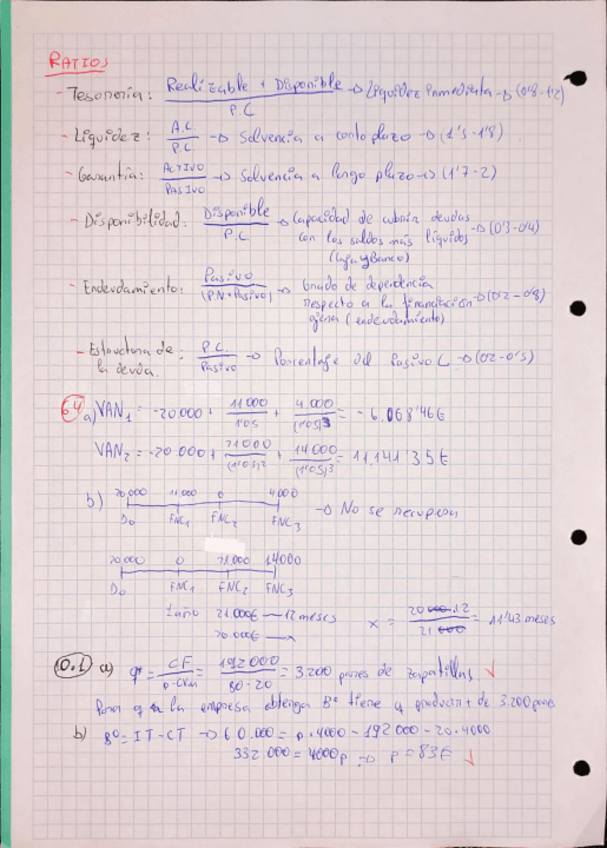 RATIOS
- Tesorería: Realizable + Disponible / P.C → Liquidez inmediata → (0'8-1'2)
- Liquidez: A.C. / P.C → Solvencia a corto plazo → (1'5-1'8)
- Garantía: ACTIVO / PASIVO → Solvencia a largo plazo → (1'7-2)
- Disponibilidad: Disponible / P.C → Capacidad de cubrir deudas
con los saldos más líquidos → (0'3-0'4)
(Caja y Banco)
- Endeudamiento: Pasivo / (P.N+Pasivo) → Grado de dependencia
respecto a la financiación → (0'2-0'8)
ajena (endeudamiento)
- Estructura de la deuda: P.C. / Pasivo → Porcentaje del Pasivo C → (0'2-0'5)
6.4 a) VAN₁ = -20000 + 11000 / 1'05 + 4.000 / (1'05)³ = -6.068'46€
VAN₂ = -20 000 + 21000 / (1'05)² + 14.000 / (1'05)³ = 11.141'35€
b) 20.000 11.000 0 4.000
D₀ FNC₁ FNC₂ FNC₃ → No se recupera
20.000 0 21.000 14000
D₀ FNC₁ FNC₂ FNC₃
1 año 21.000€ — 12 meses
20.000€ — x
x = 20 000.12 / 21 000 = 11'43 meses
10.1 a) q* = CF / p-CVu = 192000 / 80-20 = 3.200 pares de zapatillas
Para q la empresa obtenga Bº tiene q producir + de 3.200 pares
b) Bº = IT-CT → 60.000 = p.4000 - 192 000 - 20.4000
332.000 = 4000p → p = 83€